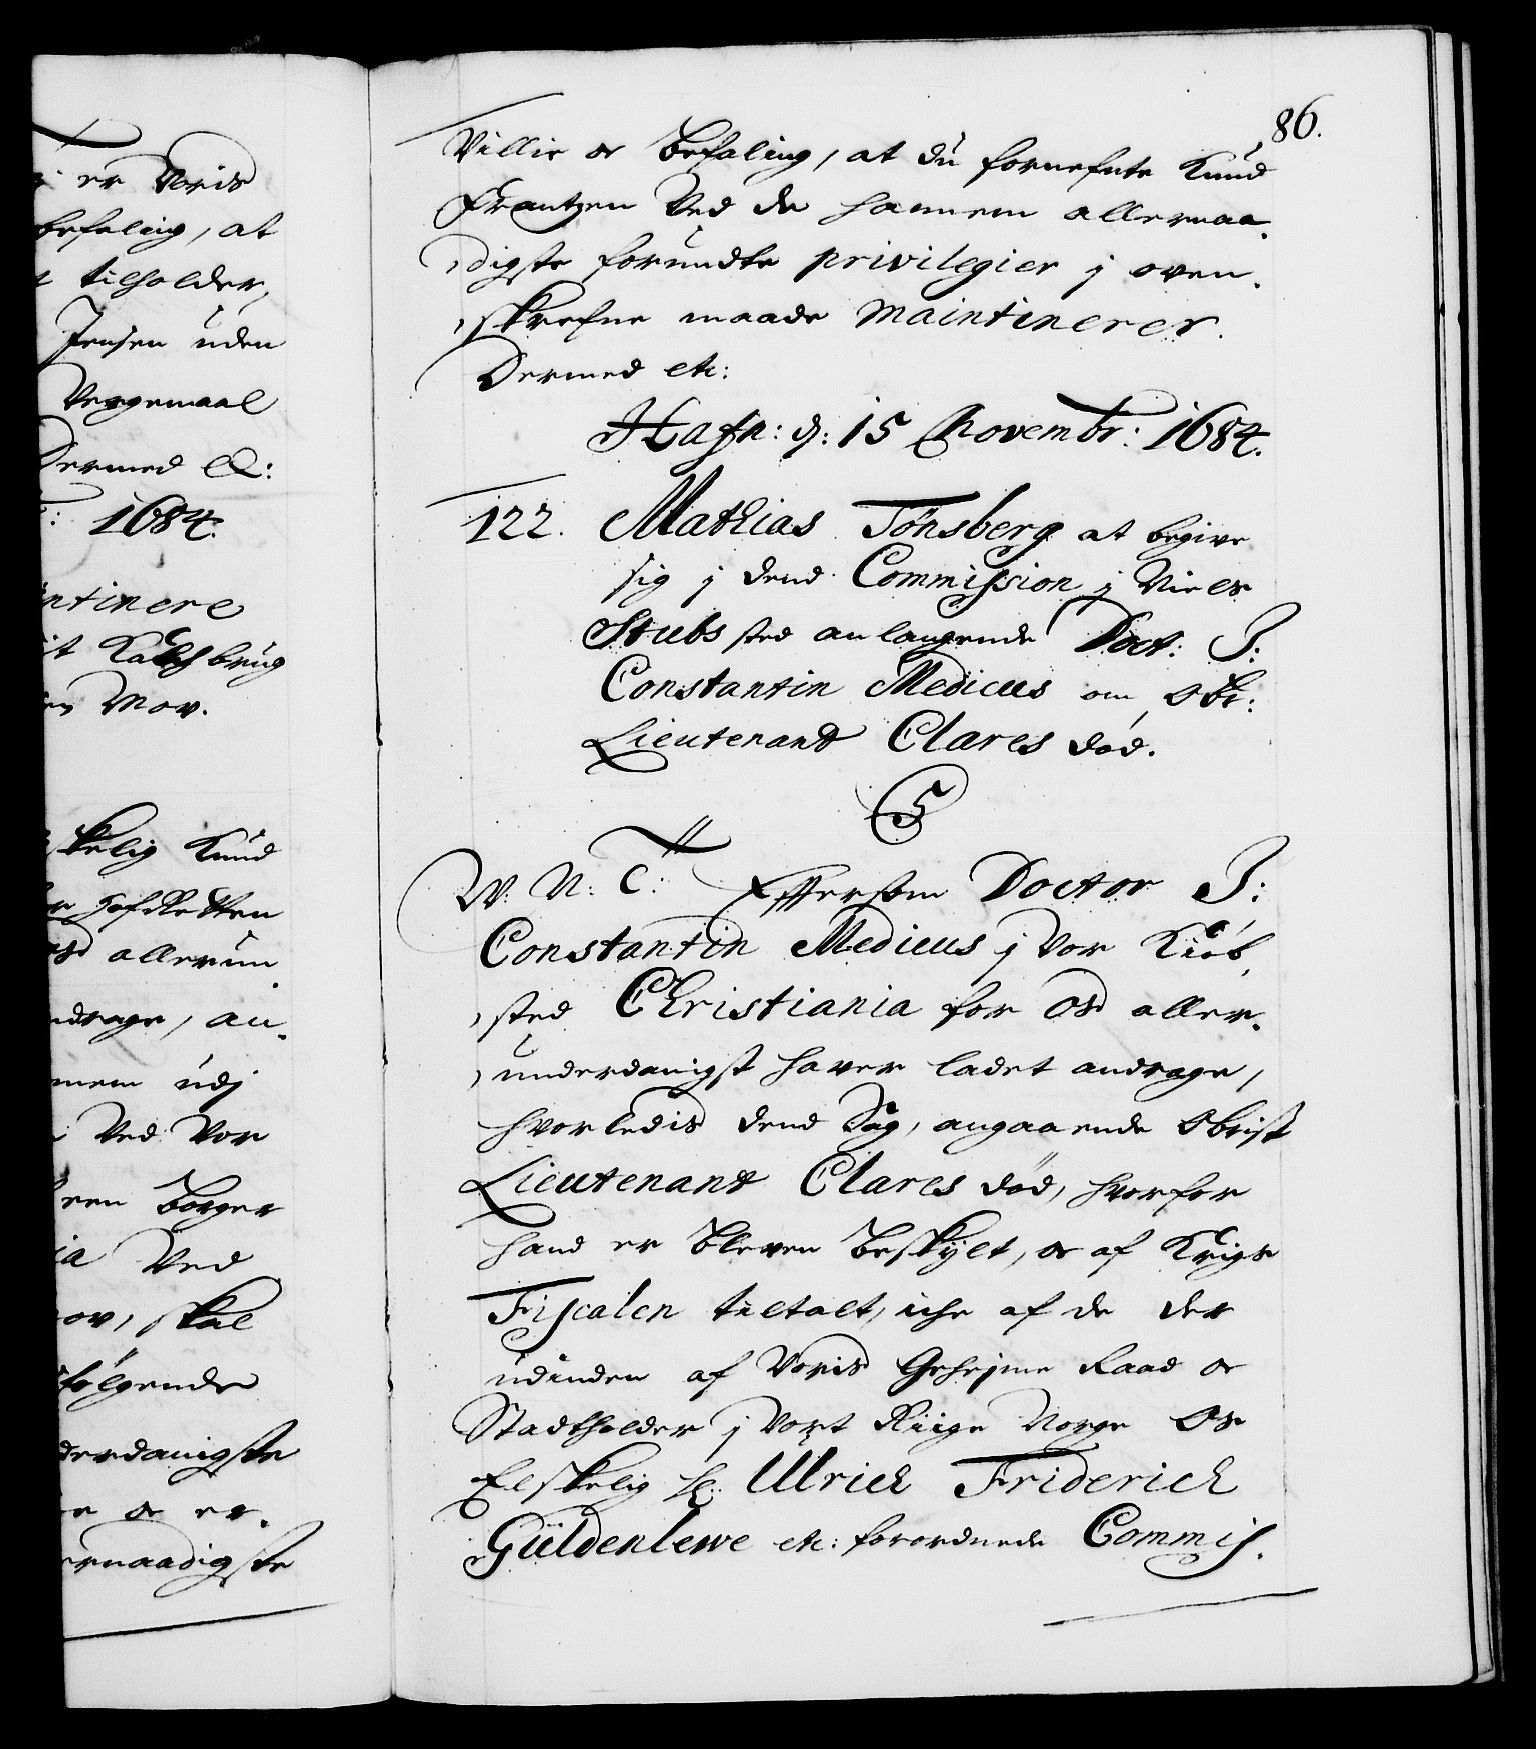 er Voris
befaling, at
tilholder,
Jensen uden
Vergemaal
Dermed etc:
1684.
ntinere
it Kalchbrug
en Mov.
skelig Knud
er Hofretten
os allerun
ndrage, an¬
nem udj
Ved Vor
een Borger
ia Ved
ov, skal
følgende
derdanigste
e oc er¬
ernaadigste
86.
Villie oc befaling, at du fornefnte Knud
Frantzen Ved de hannem allernaa¬
digste forundte privilegier j oven¬
skrefne maade maintinerer.
Dermed etc:
Hafn: d: 15 Novembr: 1684.
122. Mathias Tønsberg at begive
sig j dend Commission j Niels
Stubs sted anlangende Doct: J:
Constantin Medicus om Obr:
Lieutenant Clares død.
C5
W. N: T: Effterson Doctor J:
Constantin Medicus j Vor Kiøb
sted Christiania for Os aller¬
underdanigst haver ladet andrage,
hvorledis dend Sag, angaaende Obrist
Lieutenant Clares død, hvorfor
hand er bleven beskylt, oc af Krigs
Fiscalen tiltalt, iche af de der
udinden af Voris Gehejme Raad oc
Stadtholder j Vort Riige Norge Os
Elskelig H: Ulrich Friderich
Güldenlewe etc: forordnede Commis¬